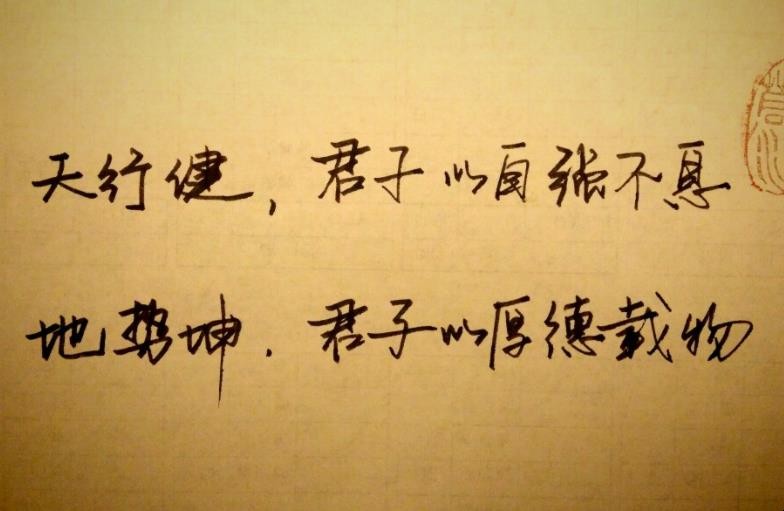 天行健,君子以自强不息
地势坤.君子以厚德载物